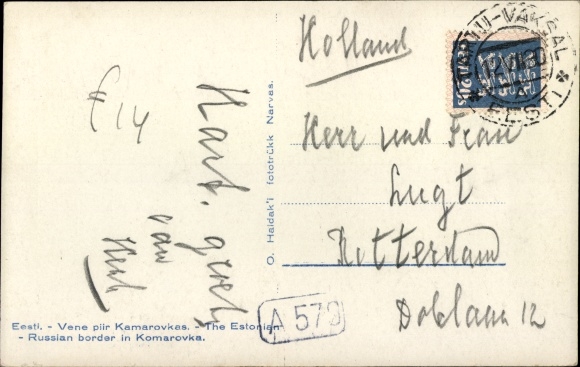 Holland
TARTU-VAKSAL
EESTI
Herr und Frau
Lugt
Rotterdam
Doklaan 12
£ 14
Hart. groet
van
O. Haidak'i fototrükk Narvas.
Eesti. - Vene piir Kamarovkas. - The Estonian
- Russian border in Komarovka.
A 573